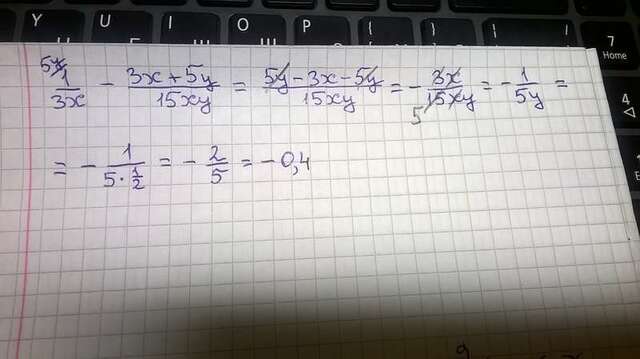 Y U I O P { } |
7
Home
4
5y
1/3x - (3x+5y)/15xy = (5y-3x-5y)/15xy = - 3x/15xy = - 1/5y =
5
= - 1/(5·1/2) = - 2/5 = -0,4